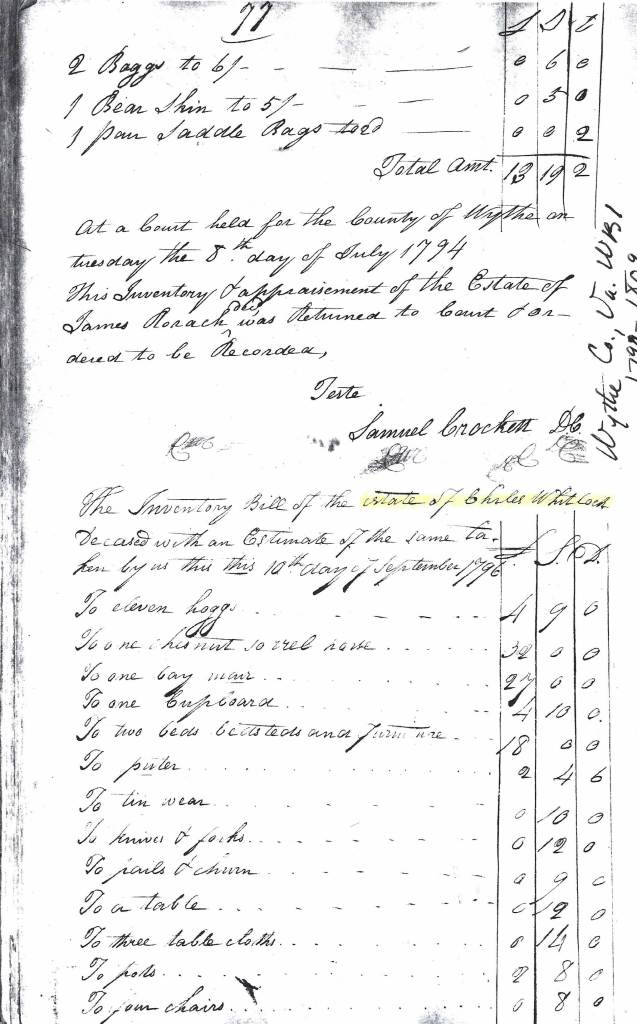 77
£ S D
2 Baggs to 6/- 0 6 0
1 Bear Skin to 5/- 0 5 0
1 pair Saddle Bags to 2d 0 0 2
Total Amt. 13 19 2
At a Court held for the County of Wythe on
tuesday the 8th. day of July 1794
This Inventory & appraisement of the Estate of
James Rorach decd, was Returned to Court & or-
dered to be Recorded,
Teste
Samuel Crockett DC.
Wythe Co., Va. WB1
1790-1809
The Inventory Bill of the estate of Charles Whitlock
Decased with an Estimate of the same ta-
ken by us this this 10th day of September 1796 £. S. D.
To eleven hoggs 4 9 0
To one chesnut sorrel horse 32 0 0
To one bay mair 27 0 0
To one Cupboard 4 10 0.
To two beds bedsteds and furniture 18 0 0
To puter 2 4 6
To tin wear 0 10 0
To knives & forks 0 12 0
To pails & churn 0 9 0
To a table 0 12 0
To three table cloths 0 14 0
To pots 2 8 0
To four chairs 0 8 0